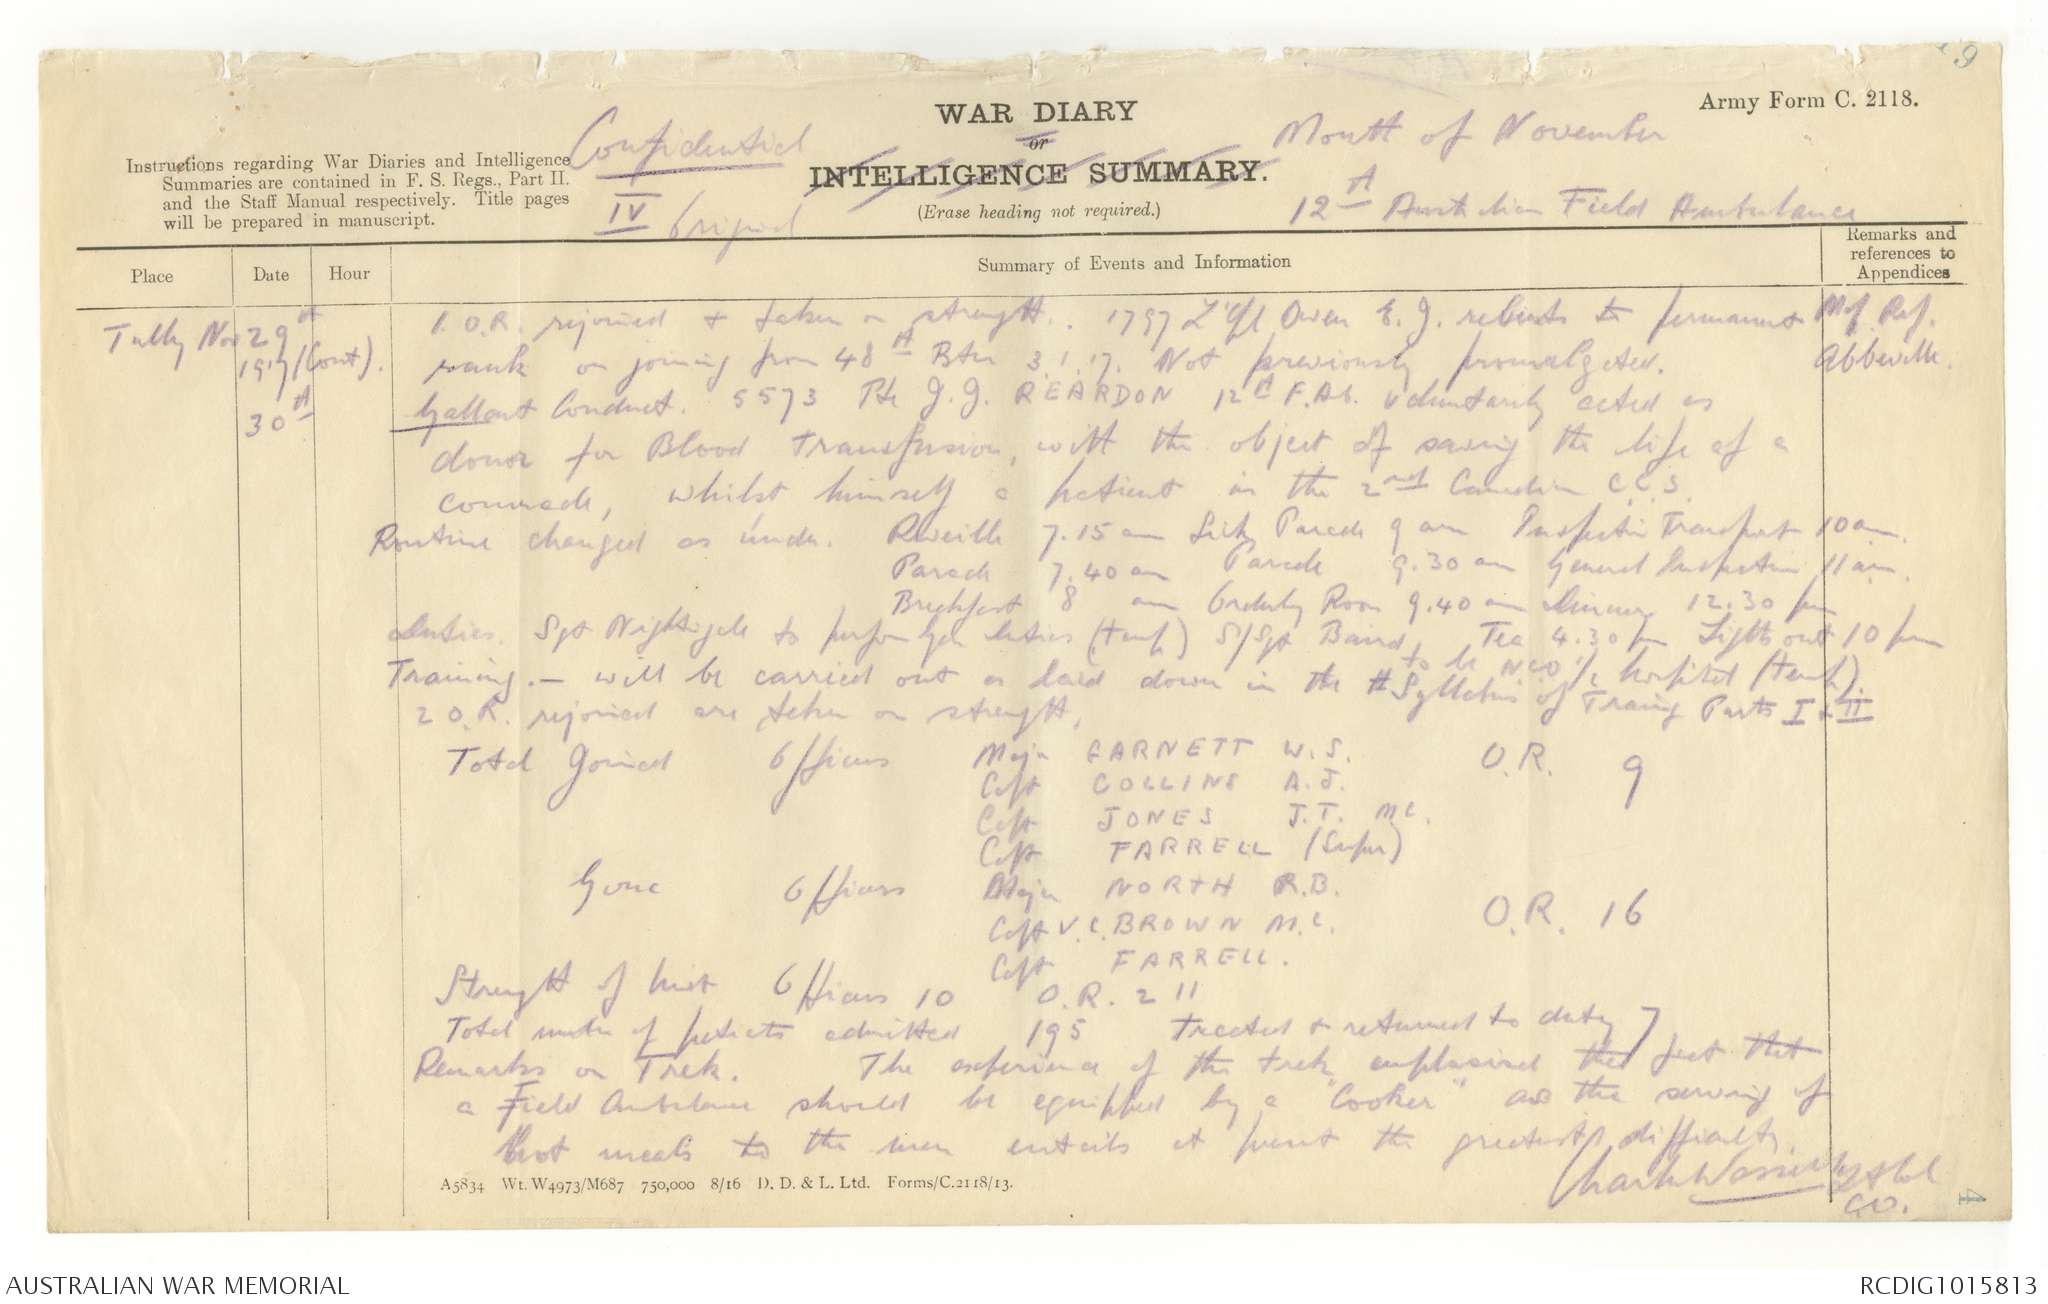 9
Army Form C. 2118.
WAR DIARY
or
INTELLIGENCE SUMMARY.
(Erase heading not required.)
Confidential
IV Original
Month of November
12th Australian Field Ambulance
Instructions regarding War Diaries and Intelligence
Summaries are contained in F. S. Regs., Part II.
and the Staff Manual respectively. Title pages
will be prepared in manuscript.
Place Date Hour Summary of Events and Information Remarks and references to Appendices
Tully Nov 29th 1. O.R. rejoined & taken on strength. 1797 L'Cpl Owen E. J. reverts to permanent Map Ref.
1917 (Cont). rank on joining from 48th Btn 3.1.17. Not previously promulgated. Abbeville.
30th Gallant Conduct. 5573 Pte J. J. REARDON 12th F.Ab. voluntarily acted as
donor for Blood transfusion, with the object of saving the life of a
comrade, whilst himself a patient in the 2nd Canadian C.C.S.
Routine changed as under. Reveille 7.15 am Sick Parade 9 am Inspection Transport 10 am.
Parade 7.40 am Parade 9.30 am General Inspection 11 am.
Breakfast 8 am Orderly Room 9.40 am Dinner 12.30 pm
Duties. Sgt Nightingale to perform duties (temp) S/Sgt Baird, Tea 4.30 pm Lights out 10 pm
to be NCO i/c hospital (temp).
Training. - will be carried out as laid down in the Syllabus of Training Parts I & II
2 O.R. rejoined are taken on strength.
Total Joined Officers Major GARNETT W. S. O.R. 9
Capt COLLINS A. J.
Capt JONES J. T. M C.
Capt FARRELL (Super)
Gone Officers Major NORTH R.B. O.R. 16
Capt V. C. BROWN M. C.
Capt FARRELL.
Strength of Unit Officers 10 O. R. 211
Total number of patients admitted 195 treated & returned to duty 7
Remarks on Trek. The experience of the trek emphasised the fact that
a Field Ambulance should be equipped by a "Cooker" as the serving of
hot meals to the men entails at present the greatest difficulty.
Lt Col
C.O.
A5834 Wt. W4973/M687 750,000 8/16 D. D. & L. Ltd. Forms/C.2118/13.
AUSTRALIAN WAR MEMORIAL
RCDIG1015813